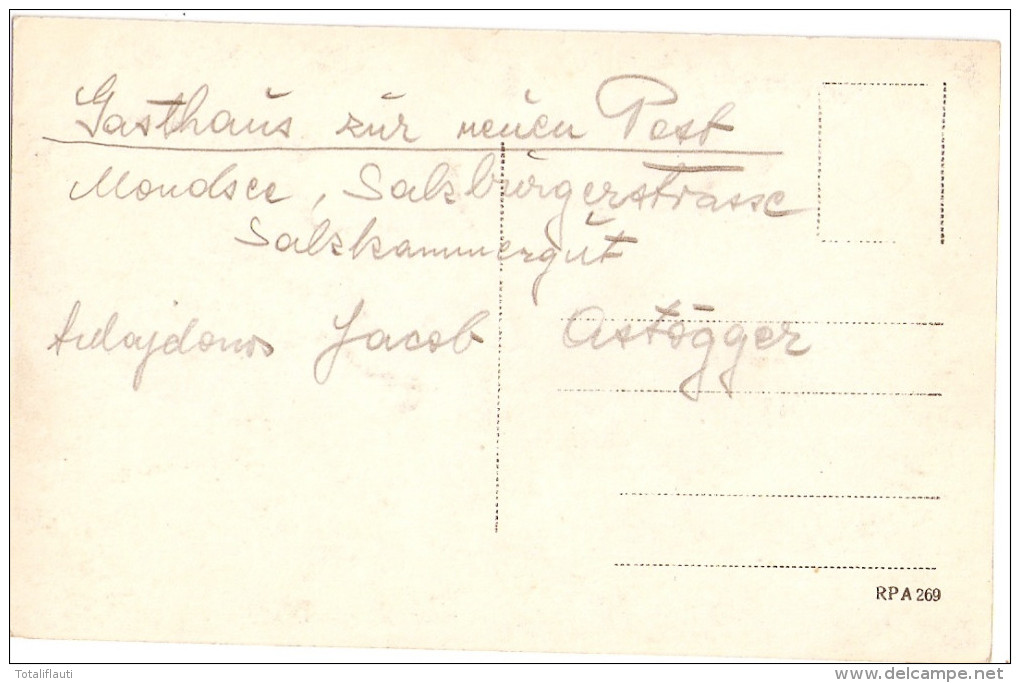 Gasthaus zur neuen Post
Mondsee, Salzburgerstrasse
Salzkammergut
Jacob Astögger
RPA 269
Totaliflauti
delcampe.net